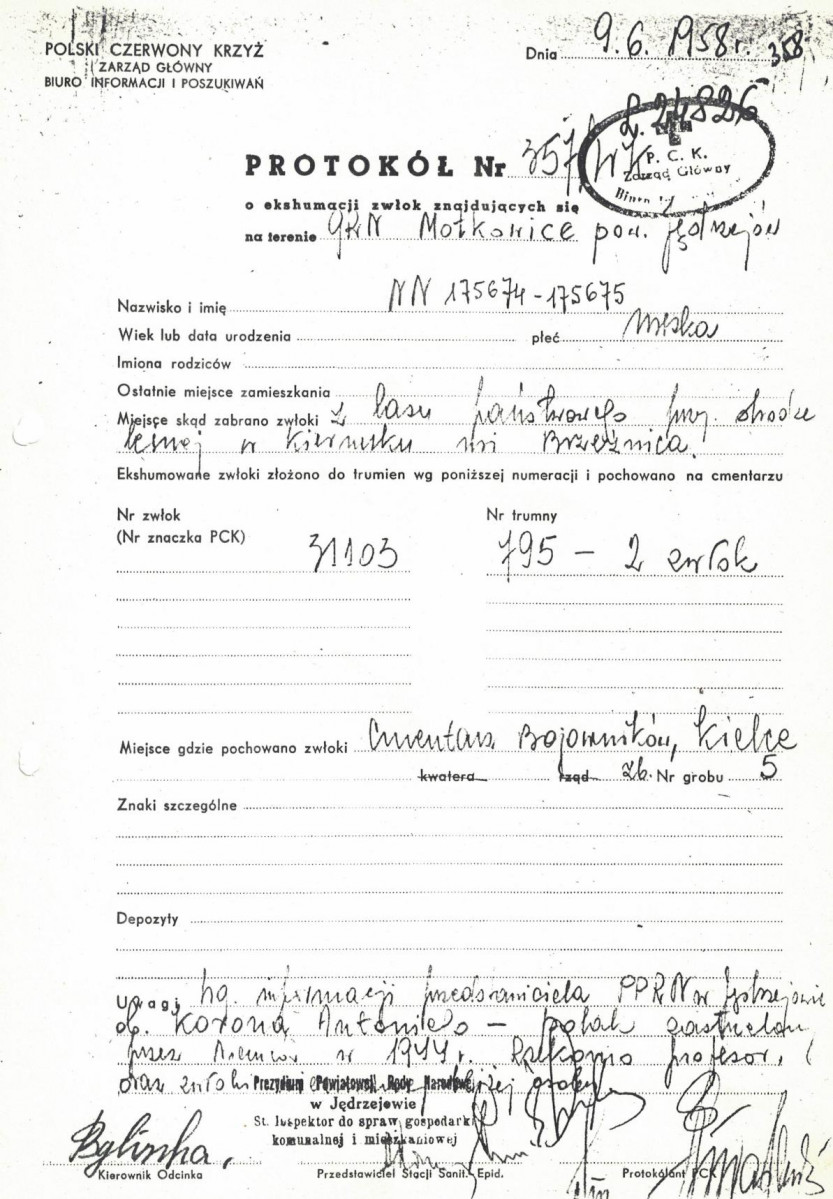 POLSKI CZERWONY KRZYŻ
ZARZĄD GŁÓWNY
BIURO INFORMACJI I POSZUKIWAŃ
Dnia 9.6.1958 r. 358
L. 24826
P. C. K.
Zarząd Główny
PROTOKÓŁ Nr 357/
o ekshumacji zwłok znajdujących się
na terenie GRN Mołkowice pow. Jędrzejów
Nazwisko i imię NN 175674-175675
Wiek lub data urodzenia płeć męska
Imiona rodziców
Ostatnie miejsce zamieszkania
Miejsce skąd zabrano zwłoki z lasu państwowego przy drodze
leśnej w kierunku wsi Brzeźnica.
Ekshumowane zwłoki złożono do trumien wg poniższej numeracji i pochowano na cmentarzu
Nr zwłok Nr trumny
(Nr znaczka PCK) 31103 795 - 2 zwłok
Miejsce gdzie pochowano zwłoki Cmentarz Bojowników, Kielce
kwatera rząd zb. Nr grobu 5
Znaki szczególne
Depozyty
Uwagi wg. informacji przedstawiciela PPRN w Jędrzejowie
ob. Korona Antoniego - polak zastrzelony
przez Niemców w 1944 r. Rzekomo profesor,
oraz zwłoki
Prezydium Powiatowej Rady Narodowej
w Jędrzejowie
St. Inspektor do spraw gospodarki
komunalnej i mieszkaniowej
Bylinka
Kierownik Odcinka Przedstawiciel Stacji Sanit. Epid. Protokólant PCK